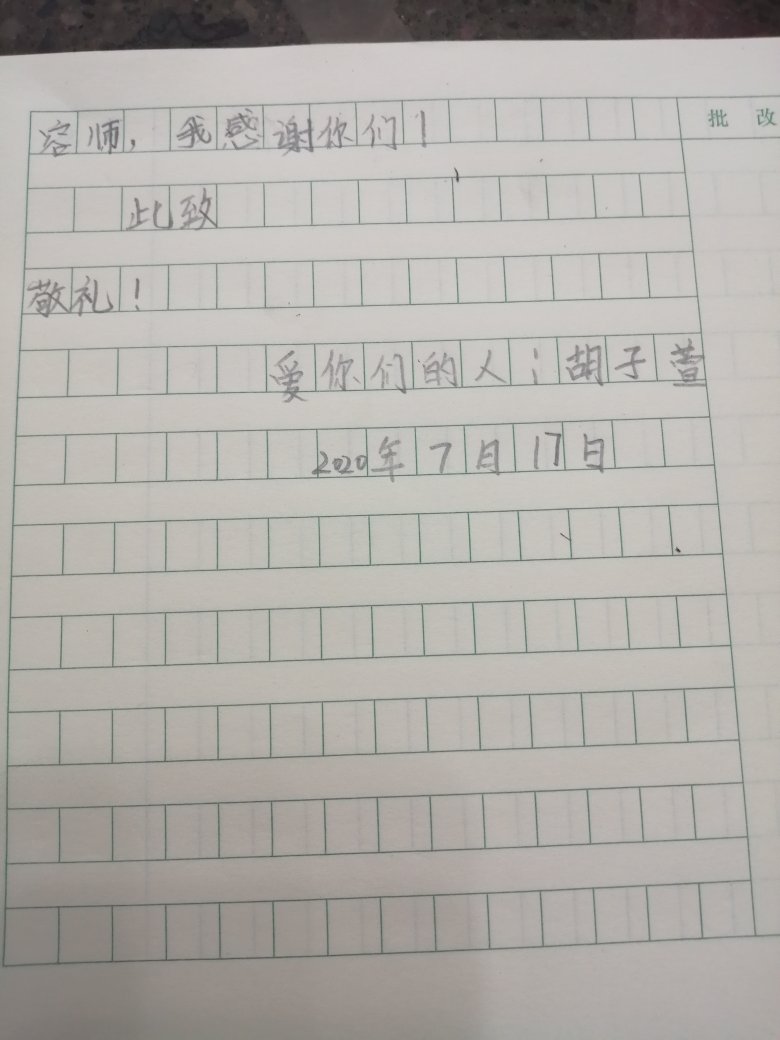 容师，我感谢你们！
批改
此致
敬礼！
爱你们的人：胡子萱
2020年7月17日